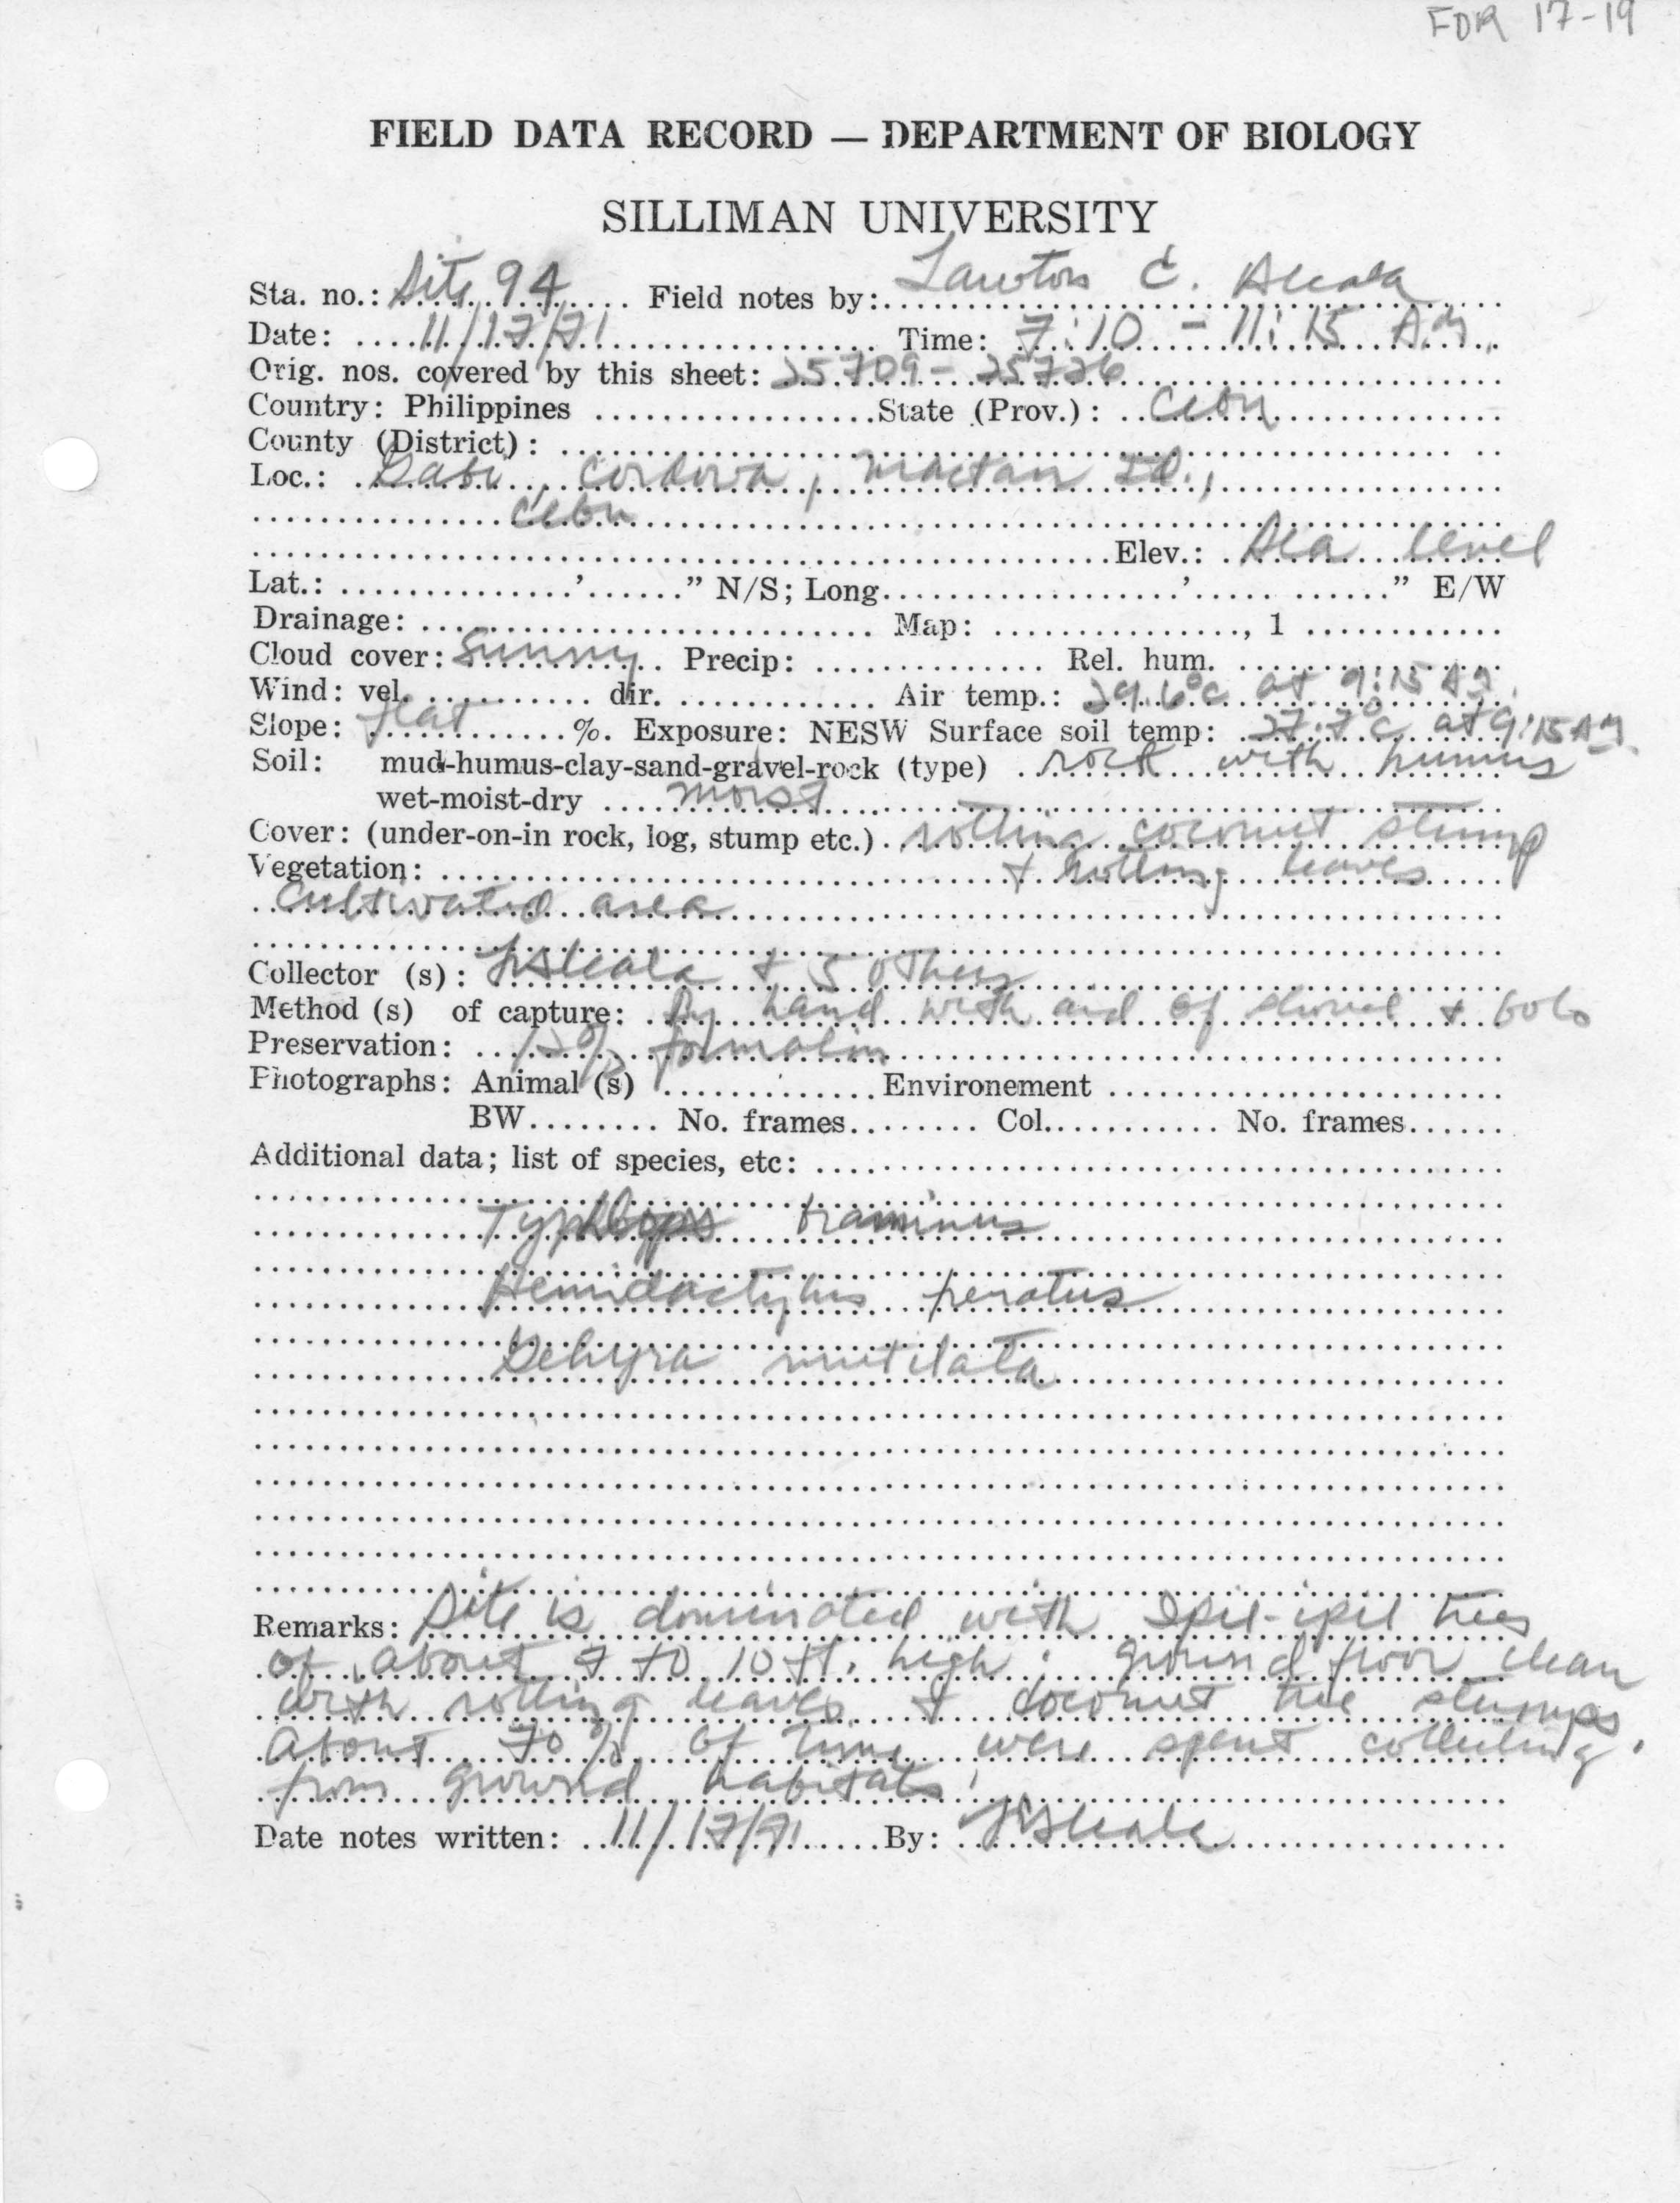 FDR 17-19
FIELD DATA RECORD — DEPARTMENT OF BIOLOGY
SILLIMAN UNIVERSITY
Sta. no.: Site 94 Field notes by: Lawton C. Alcala
Date: 11/17/71 Time: 7:10 - 11:15 AM.
Orig. nos. covered by this sheet: 25709 - 25726
Country: Philippines State (Prov.): Cebu
County (District):
Loc.: Gabi, Cordova, Mactan Id.,
Cebu
Elev.: Sea level
Lat.: ' " N/S; Long. ' " E/W
Drainage: Map: , 1
Cloud cover: Sunny Precip: Rel. hum.
Wind: vel. dir. Air temp.: 29.6°c at 9:15 AM.
Slope: flat %. Exposure: NESW Surface soil temp: 27.7°c at 9:15 AM.
Soil: mud-humus-clay-sand-gravel-rock (type) rock with humus
wet-moist-dry moist
Cover: (under-on-in rock, log, stump etc.) rotting coconut stump
Vegetation: + rotting leaves
Cultivated area
Collector (s): LAlcala + 5 others
Method (s) of capture: By hand with aid of shovel + bolo
Preservation: 12% formalin
Photographs: Animal (s) Environement
BW No. frames Col. No. frames
Additional data; list of species, etc:
Typhlops braminus
Hemidactylus frenatus
Gehyra mutilata
Remarks: Site is dominated with Ipil-ipil trees
of about 7 to 10 ft. high; ground floor clean
with rotting leaves + coconut tree stumps
About 70% of time were spent collecting
from ground habitats.
Date notes written: 11/17/71 By: LAlcala